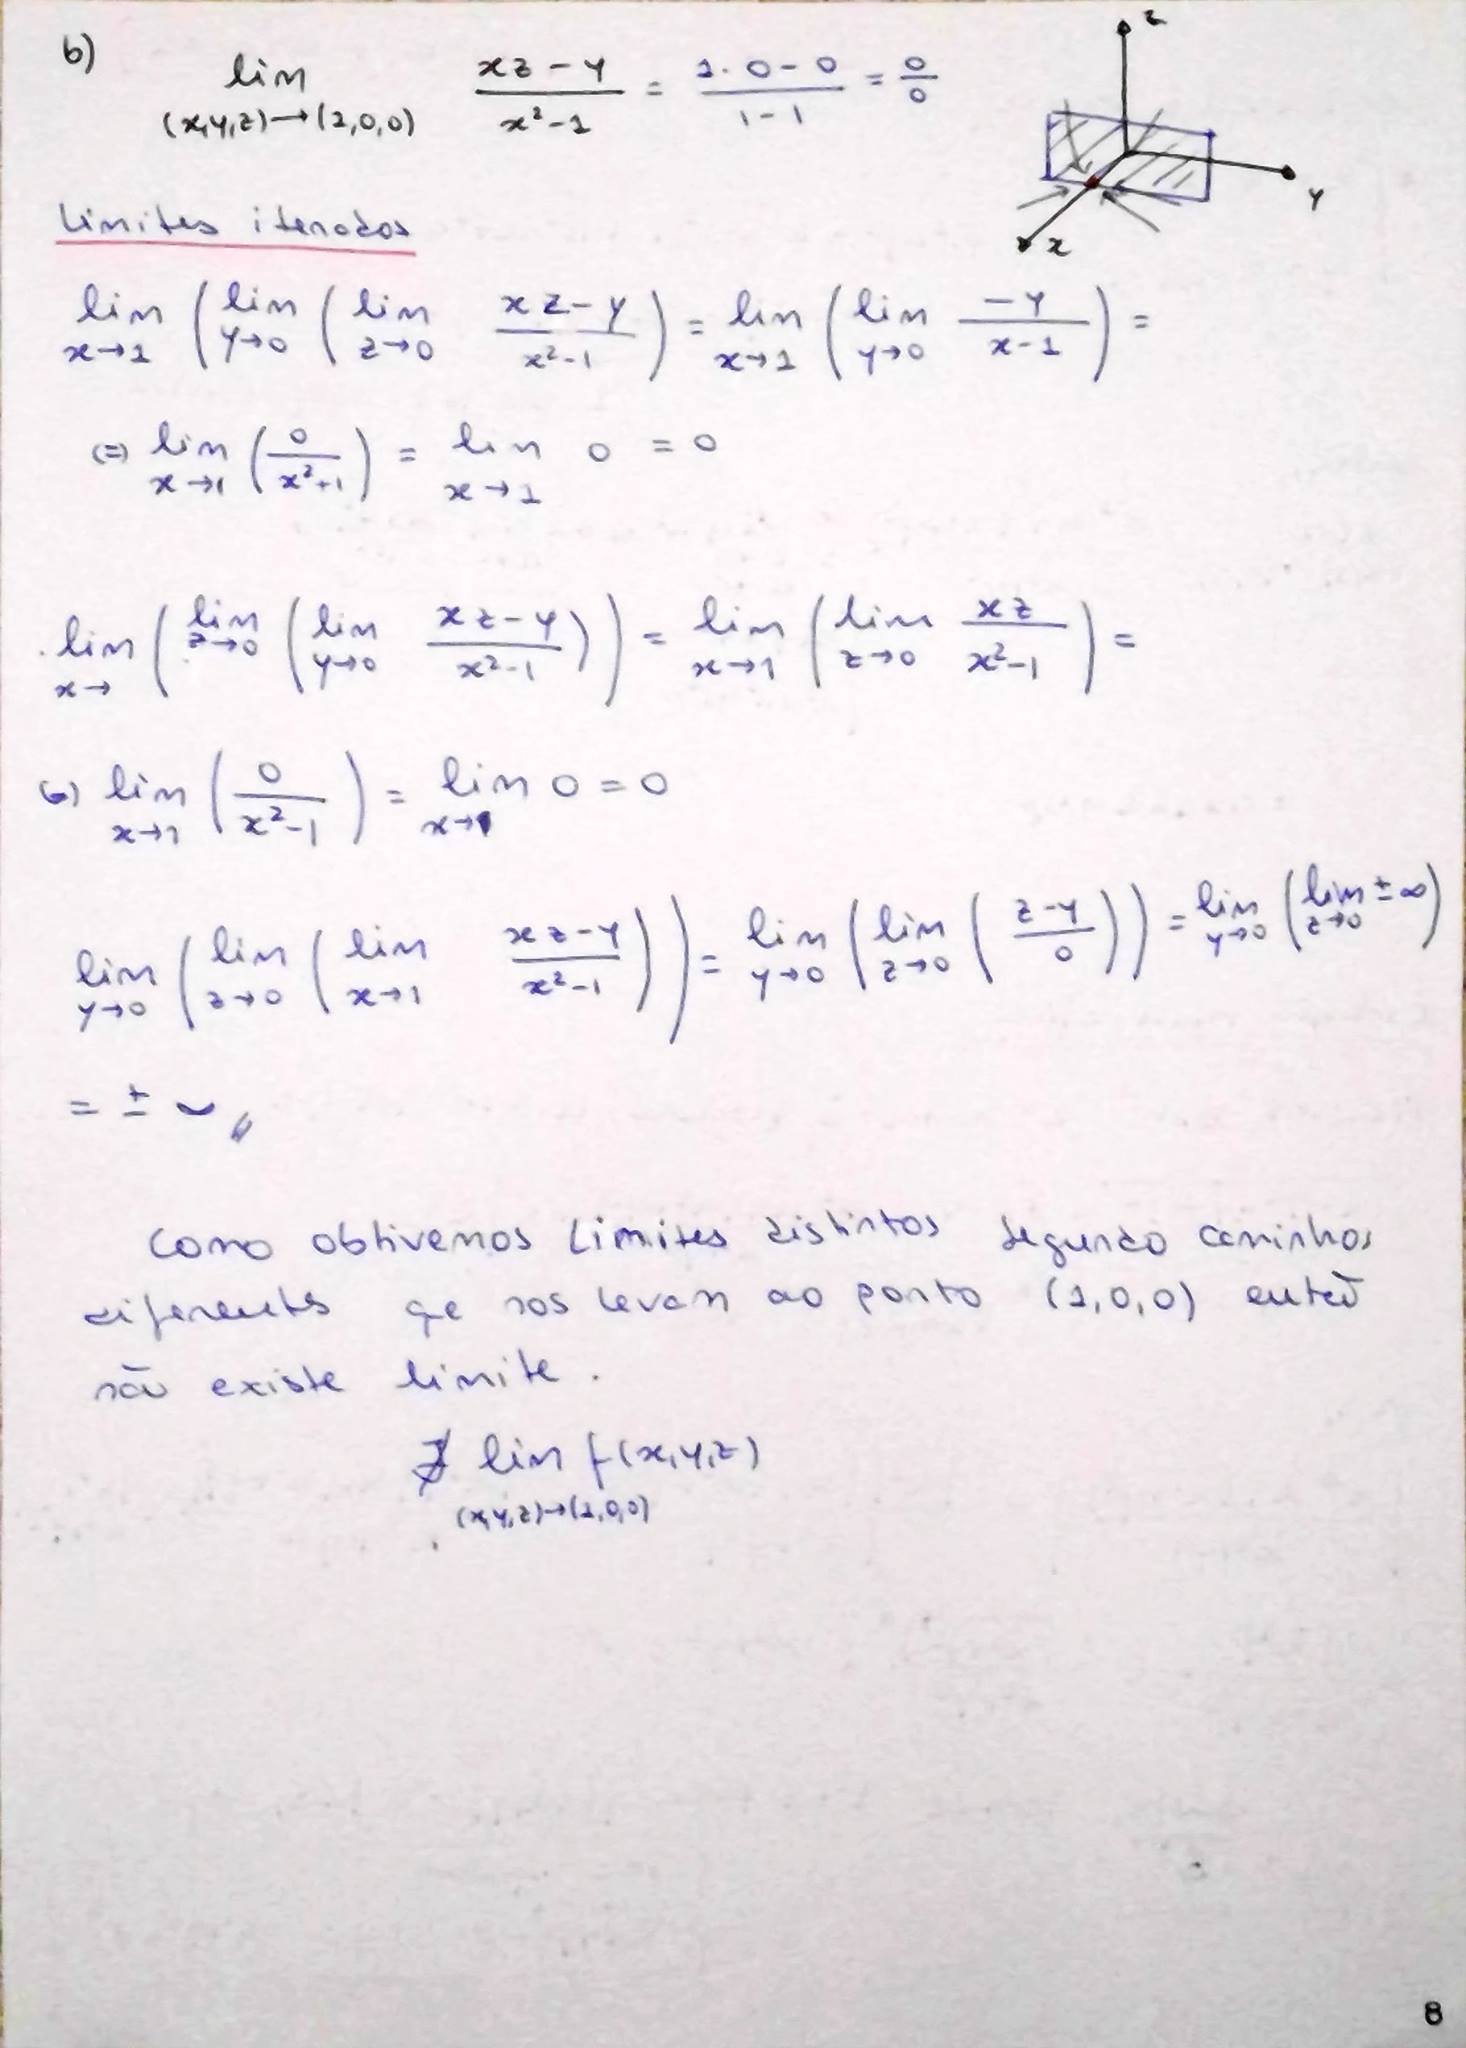 b) lim (x,y,z)→(1,0,0) xz-y / x²-1 = 1·0-0 / 1-1 = 0/0
z
y
x
Limites iterados
lim x→1 ( lim y→0 ( lim z→0 xz-y / x²-1 ) = lim x→1 ( lim y→0 -y / x-1 ) =
(=) lim x→1 ( 0 / x²+1 ) = lim x→1 0 = 0
. lim x→ ( lim z→0 ( lim y→0 xz-y / x²-1 ) ) = lim x→1 ( lim z→0 xz / x²-1 ) =
(=) lim x→1 ( 0 / x²-1 ) = lim x→1 0 = 0
lim y→0 ( lim z→0 ( lim x→1 xz-y / x²-1 ) ) = lim y→0 ( lim z→0 ( z-y / 0 ) ) = lim y→0 ( lim z→0 ±∞ )
= ±∞ //
Como obtivemos Limites distintos segundo caminhos
diferentes qe nos levam ao ponto (1,0,0) então
não existe limite.
∄ lim (x,y,z)→(1,0,0) f(x,y,z)
8